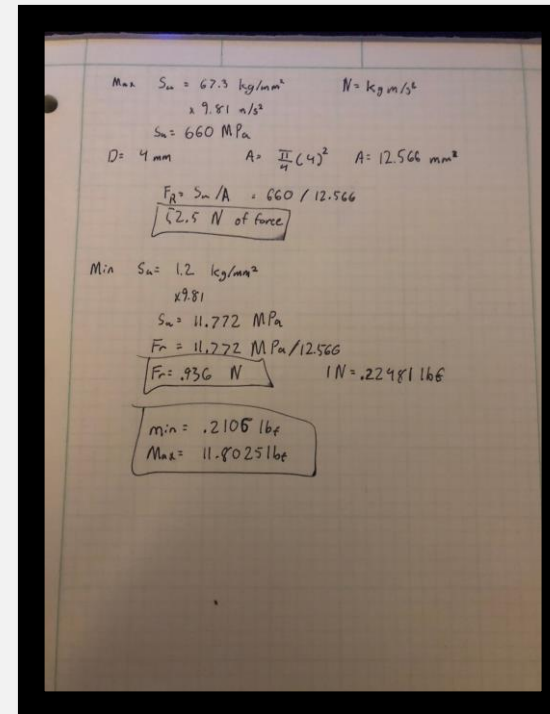 Max Su = 67.3 kg/mm² N = kg m/s²
x 9.81 m/s²
Su = 660 MPa
D = 4 mm A = π/4 (4)² A = 12.566 mm²
FR = Su/A = 660 / 12.566
52.5 N of force
Min Su = 1.2 kg/mm²
x9.81
Su = 11.772 MPa
Fr = 11.772 MPa/12.566
Fr = .936 N 1N = .22481 lbf
min = .2105 lbf
Max = 11.8025 lbf